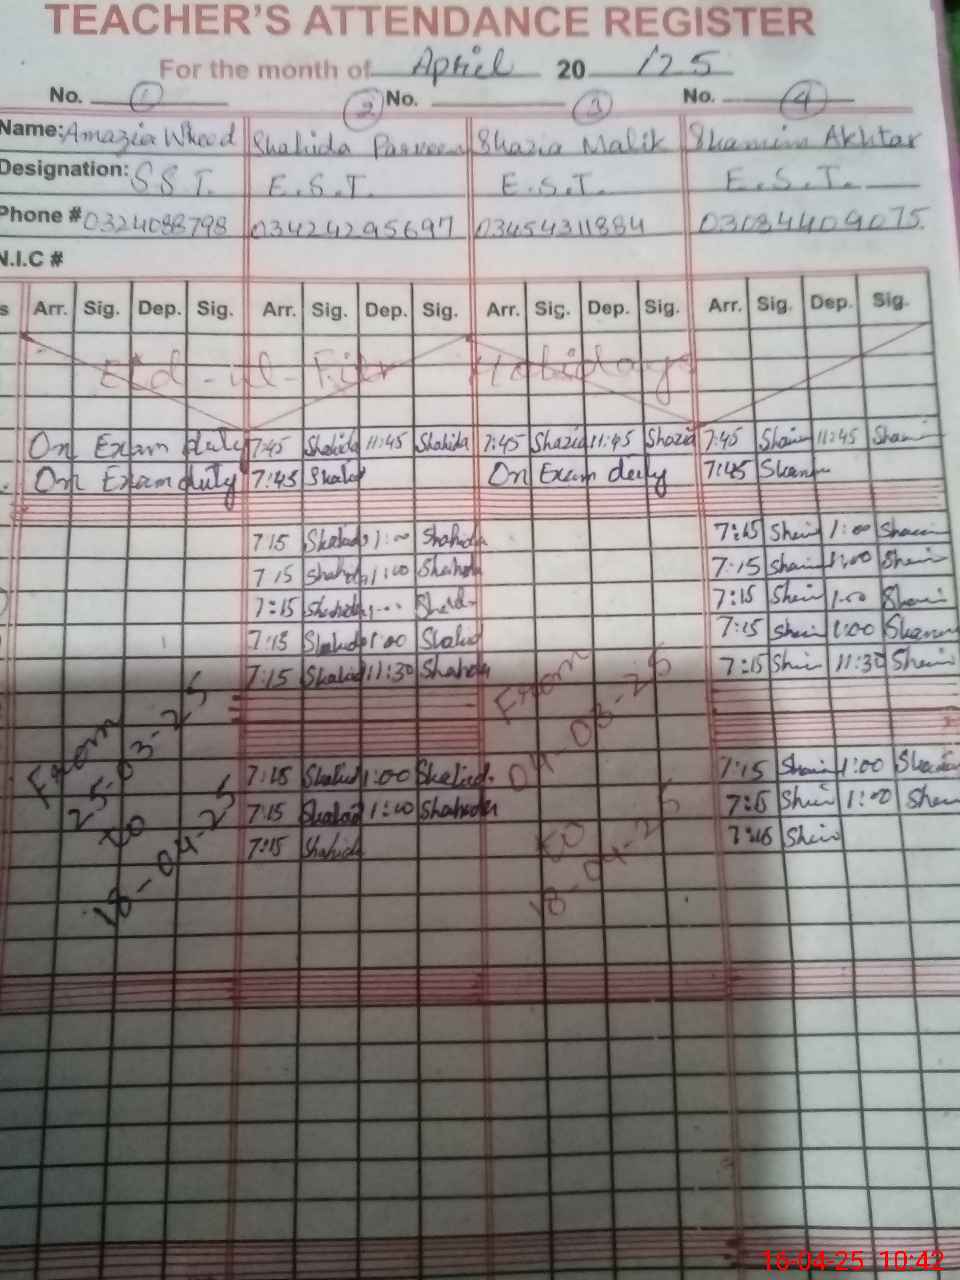 TEACHER'S ATTENDANCE REGISTER
For the month of April 20 /25
No. 1 2 No. 3 No. 4
Name: Amazia Wheed Shahida Parveen Shazia Malik Shamim Akhtar
Designation: S.S.T. E.S.T. E.S.T. E.S.T.
Phone # 0324088798 03424295697 03454311884 03084409075
N.I.C #
s Arr. Sig. Dep. Sig. Arr. Sig. Dep. Sig. Arr. Sig. Dep. Sig. Arr. Sig. Dep. Sig.
Eid-ul-Fitr Holidays
On Exam duty 7:45 Shahida 11:45 Shahida 7:45 Shazia 11:45 Shazia 7:45 11:45
On Exam duty 7:45 On Exam duty 7:45
7:15 1:00 Shahida 7:15 1:00
7:15 Shahida 1:00 Shahida 7:15 1:00
7:15 Shahida 7:15 1:00
7:15 Shahid 1:00 Shahid 7:15 1:00
7:15 11:30 Shahida 7:15 11:30
From 25-03-25 to 18-04-25
From 04-03-25 to 18-04-25
7:15 1:00 7:15 1:00
7:15 1:00 Shahida 7:15 1:00
7:15 Shahida
16-04-25 10:42